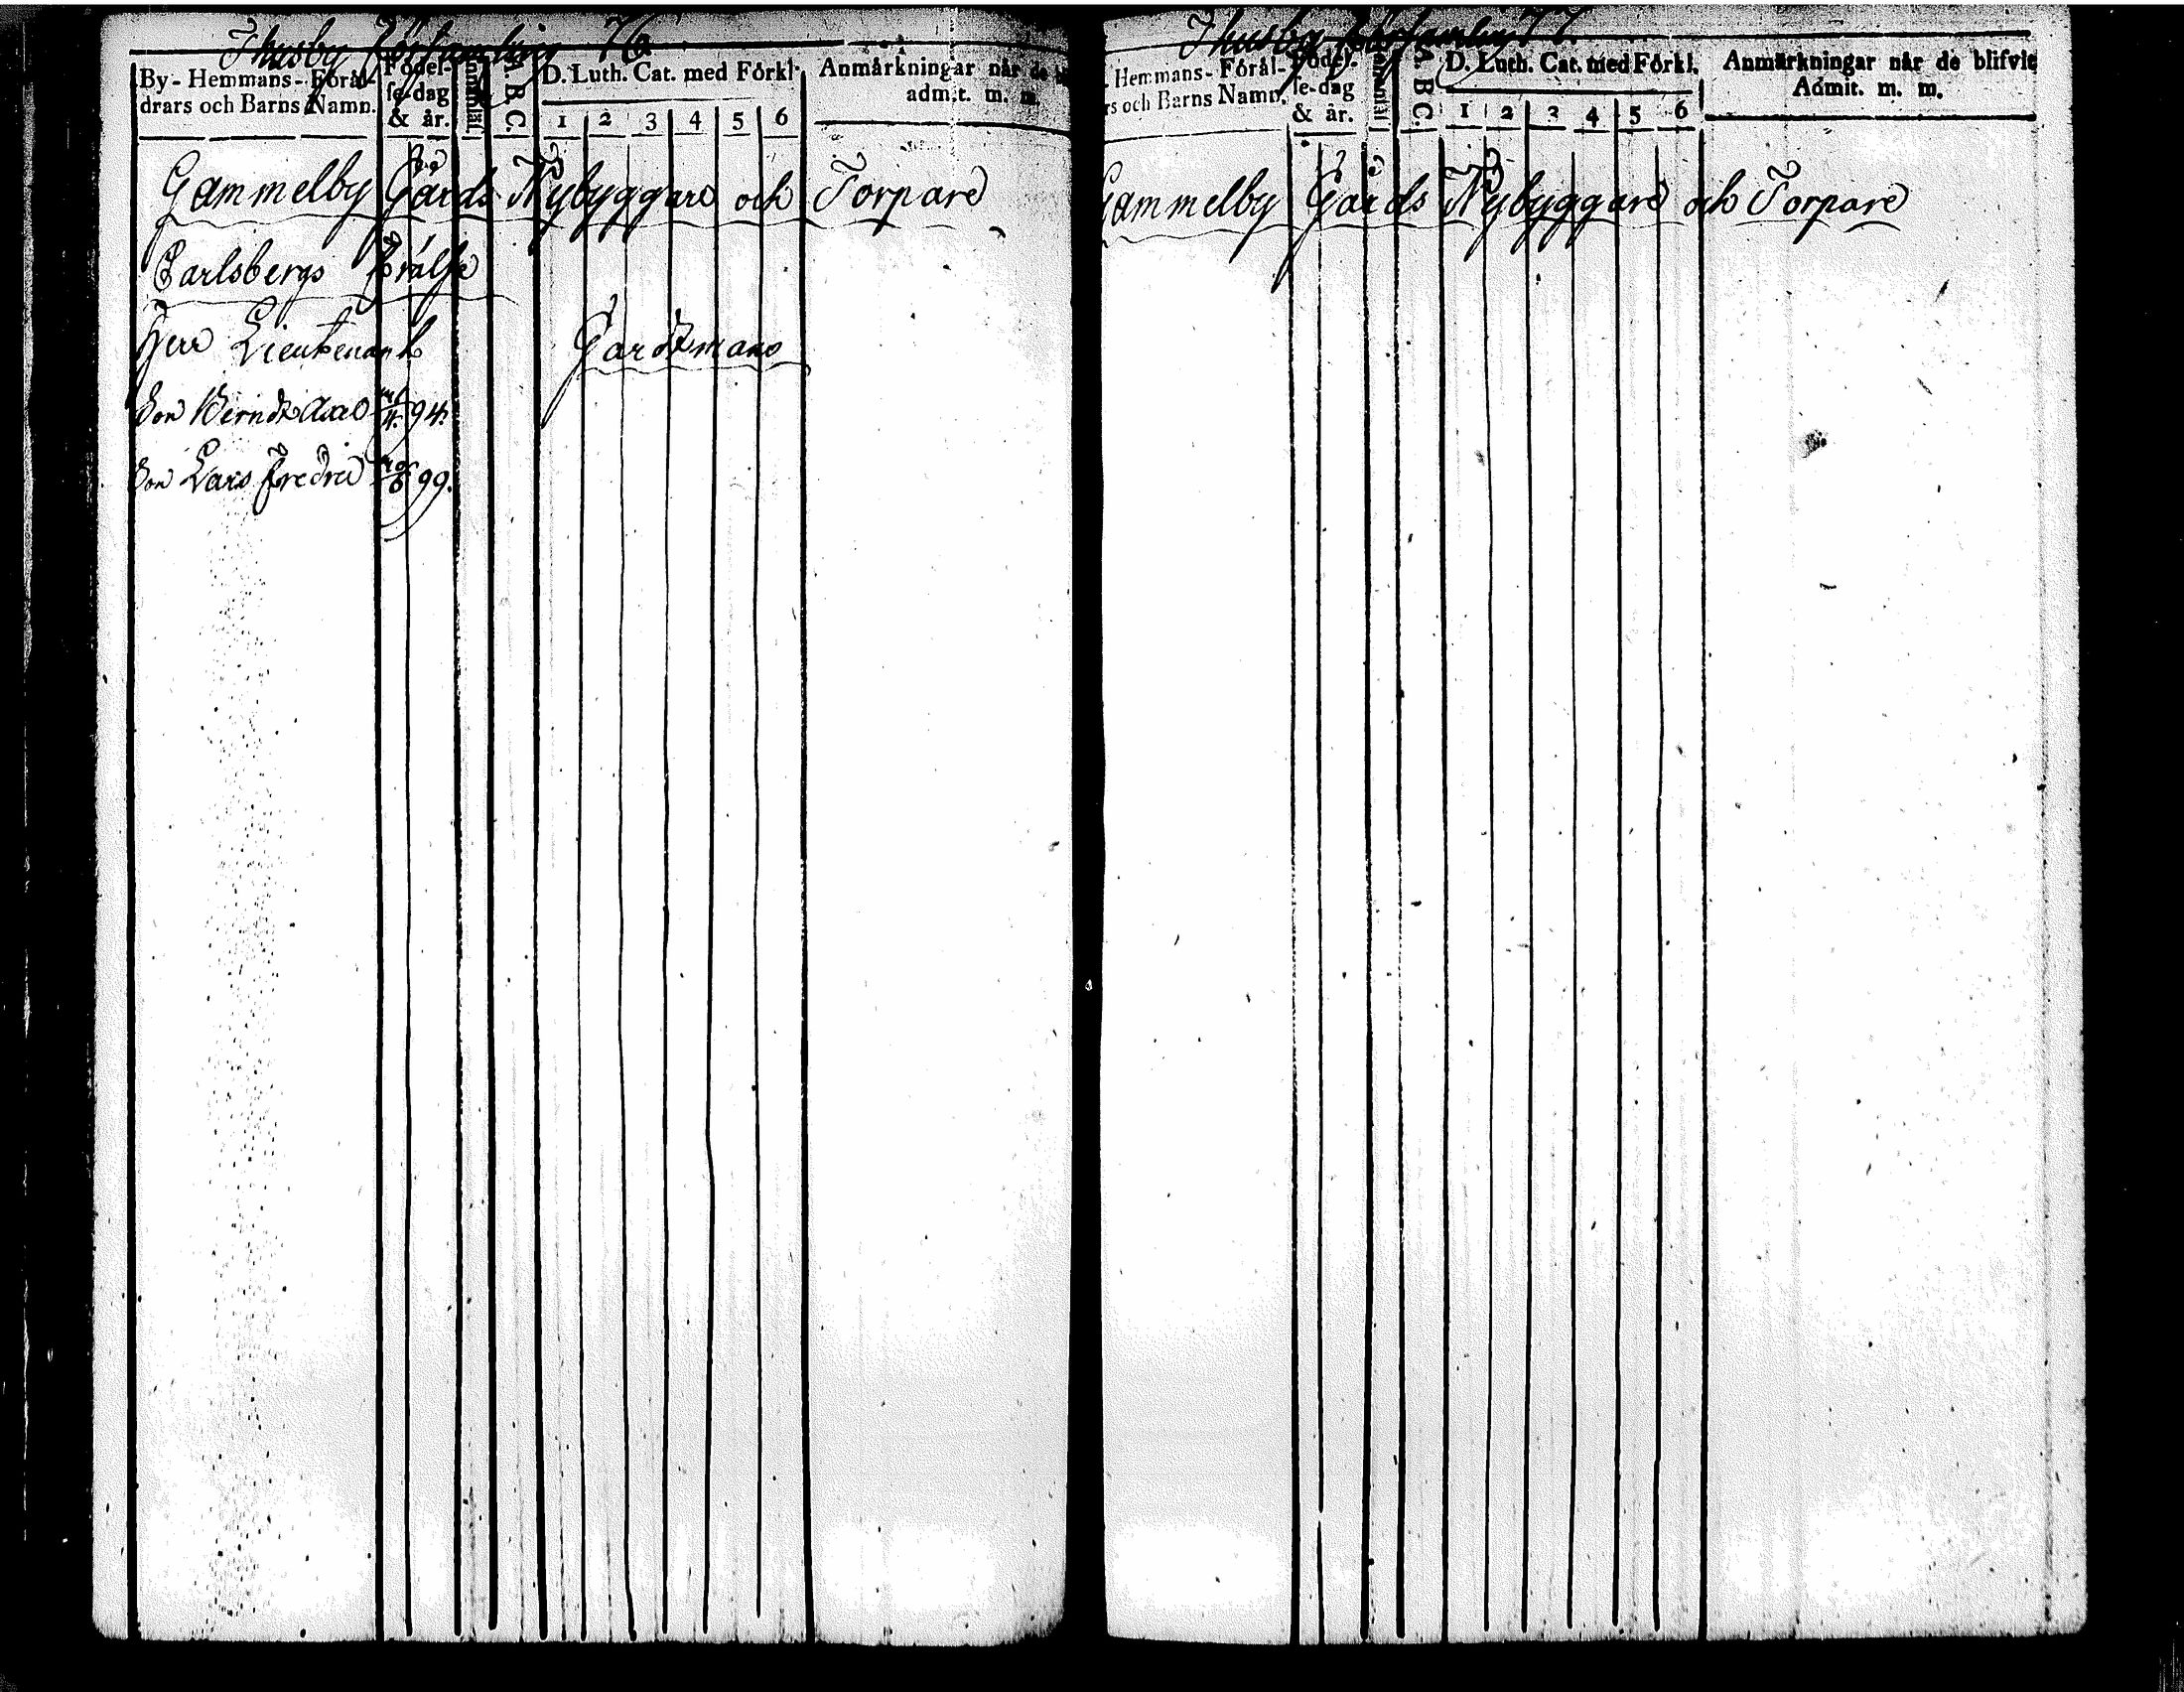 Thusby församling 76
By-Hemmans-Förål-
drars och Barns Namn.
Födel-
se-dag
& år.
A. B. C.
D. Luth. Cat. med Förkl.
1 2 3 4 5 6
Anmärkningar når de
admit. m. m.
Gammelby Gårds Nybyggare och Torpare
Carlsbergs Frälse
Herr Lieutenant
Son Berndt 94.
Son Lars Fredric 99.
Thusby församling 77.
Hemmans-Förål-
rs och Barns Namn.
Födel-
se-dag
& år.
A. B C.
D. Luth. Cat. med Förkl.
1 2 3 4 5 6
Anmärkningar når de blifvit
Admit. m. m.
Gammelby Gårds Nybyggare och Torpare